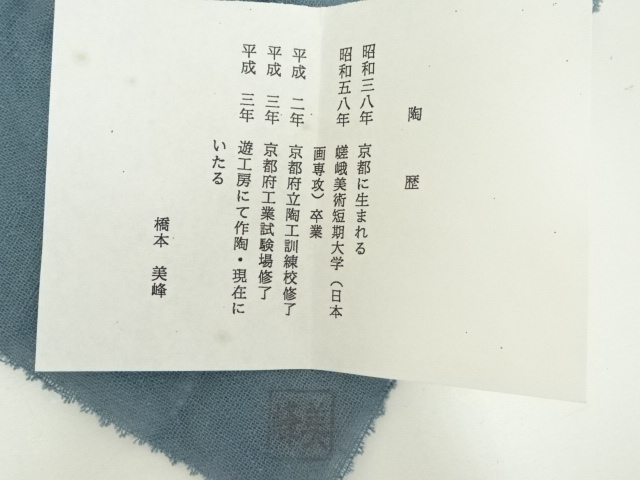 陶歴
昭和三八年 京都に生まれる
昭和五八年 嵯峨美術短期大学（日本
画専攻）卒業
平成 二年 京都府立陶工訓練校修了
平成 三年 京都府工業試験場修了
平成 三年 遊工房にて作陶・現在に
いたる
橋本 美峰
美峰